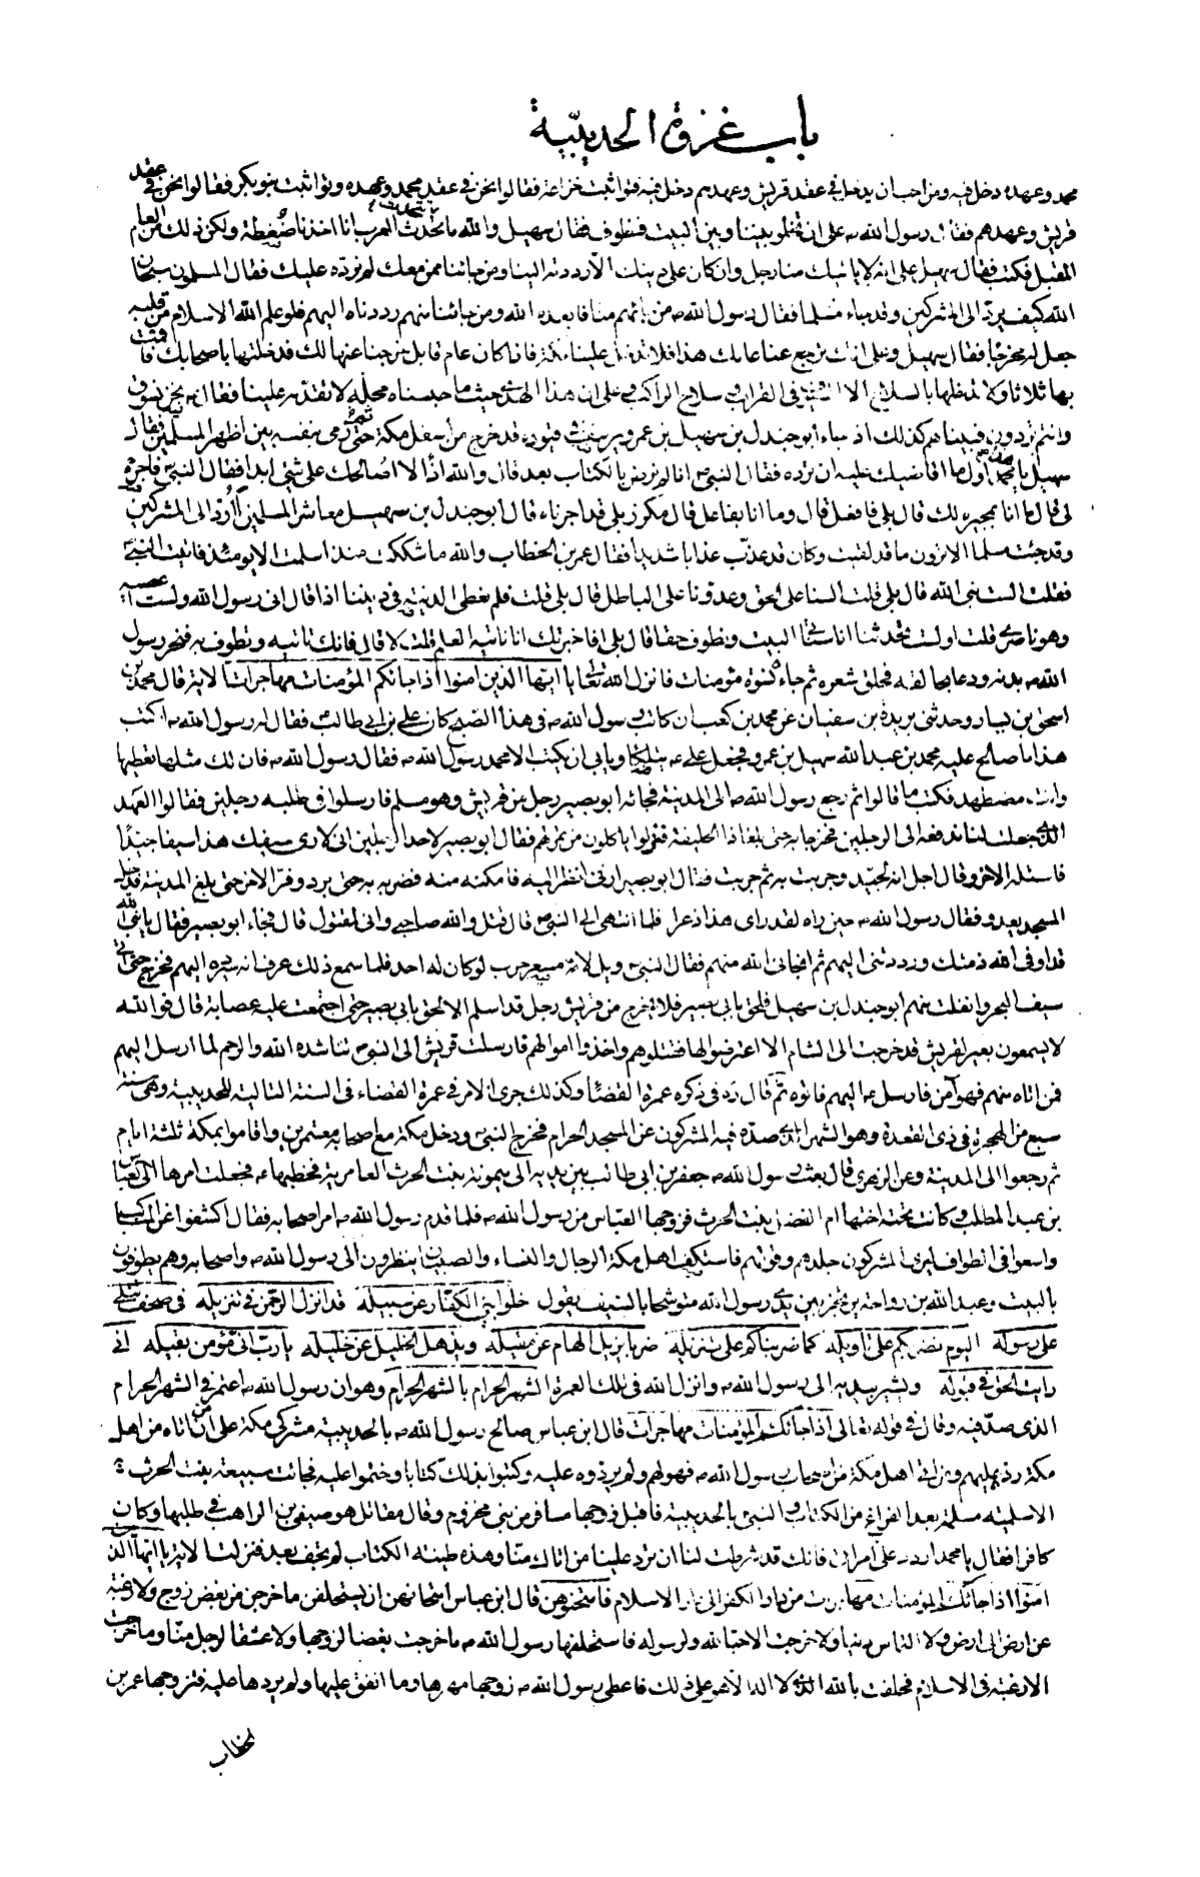 باب غزوة الحديبيّة
محمد وعهده دخل فيه ومن احب ان يدخل في عقد قريش وعهدهم دخل فيه فتواثبت خزاعة فقالوا نحن في عقد محمد وعهده وتواثبت بنو بكر فقالوا نحن في عقد
قريش وعهدهم فقال رسول الله ص على ان تخلوا بيننا وبين البيت فنطوف فقال سهيل والله ما تتحدث العرب انا اخذنا ضُغطة ولكن ذلك من العام
المقبل فكتب فقال سهيل على انه لا ياتيك منا رجل وان كان على دينك الا رددته الينا ومن جائنا ممن معك لم نرده عليك فقال المسلمون سبحان
الله كيف يرد الى المشركين وقد جاء مسلما فقال رسول الله ص من جائهم منا فابعده الله ومن جائنا منهم رددناه اليهم فلو علم الله الاسلام من قلبه
جعل له مخرجا فقال سهيل وعلى انك ترجع عنا عامك هذا فلا تدخل علينا مكة فاذا كان عام قابل خرجنا عنها لك فدخلتها باصحابك فاقمت
بها ثلاثا ولا تدخلها بالسلاح الا السيوف في القراب وسلاح الراكب وعلى ان هذا الهدي حيث ما حبسناه محله لا تقدمه علينا فقال نحن نسوق
وانتم تردون فبينا هم كذلك اذ جاء ابو جندل بن سهيل بن عمرو يرسف في قيوده قد خرج من اسفل مكة حتى رمى بنفسه بين اظهر المسلمين فقال
سهيل هذا يا محمد اول ما اقاضيك عليه ان ترده فقال النبي ص انا لم نرض بالكتاب بعد قال والله اذًا لا اصالحك على شئ ابدا فقال النبي ص فاجره
لي قال ما انا بمجيره لك قال بلى فافعل قال وما انا بفاعل قال مكرز بلى قد اجرناه قال ابو جندل بن سهيل معاشر المسلمين أأرد الى المشركين
وقد جئت مسلما الا ترون ما قد لقيت وكان قد عذب عذابا شديدا فقال عمر بن الخطاب والله ما شككت منذ اسلمت الا يومئذ فاتيت النبي ص
فقلت الست نبي الله قال بلى قلت السنا على الحق وعدونا على الباطل قال بلى قلت فلم نعطى الدنية في ديننا اذا قال انى رسول الله ولست اعصيه
وهو ناصري قلت اولست تحدثنا انا سناتي البيت ونطوف حقا قال بلى افاخبرتك انا ناتيه العام قلت لا قال فانك تاتيه وتطوف به فنحر رسول
الله ص بدنه ودعا بحالقه فحلق شعره ثم جاءه نسوة مؤمنات فانزل الله تعالى يا ايها الذين امنوا اذا جائكم المؤمنات مهاجرات الاية قال محمد بن
اسحق بن يسار وحدثني بريدة بن سفيان عن محمد بن كعب ان كاتب رسول الله ص في هذا الصلح كان علي بن ابي طالب فقال له رسول الله ص اكتب
هذا ما صالح عليه محمد بن عبد الله سهيل بن عمرو فجعل علي ع يتلكأ ويابى ان يكتب الا محمد رسول الله ص فقال رسول الله ص فان لك مثلها تعطيها
وانت مضطهد فكتب ما قالوا ثم رجع رسول الله ص الى المدينة فجائه ابو بصير رجل من قريش وهو مسلم فارسلوا في طلبه رجلين فقالوا العهد
الذي جعلت لنا فدفعه الى الرجلين فخرجا به حتى بلغا ذا الحليفة فنزلوا ياكلون من تمر لهم فقال ابو بصير لاحد الرجلين انى لارى سيفك هذا سيفا جيدًا
فاستله الاخر وقال اجل انه لجيد وجربت به ثم جربت فقال ابو بصير ارني انظر اليه فامكنه منه فضربه به حتى برد وفر الاخر حتى بلغ المدينة فدخل
المسجد يعدو فقال رسول الله ص حين راه لقد راى هذا ذعرا فلما انتهى الى النبي ص قال قتل والله صاحبي وانى لمقتول قال فجاء ابو بصير فقال يا نبي الله
قد اوفى الله ذمتك ورددتني اليهم ثم انجانى الله منهم فقال النبي ص ويل لامه مسعر حرب لو كان له احد فلما سمع ذلك عرف انه سيرده اليهم فخرج حتى اتى
سيف البحر وانفلت منهم ابو جندل بن سهيل فلحق بابى بصير فلا يخرج من قريش رجل قد اسلم الا لحق بابى بصير حتى اجتمعت عليه عصابة قال فوالله
لا يسمعون بعير لقريش قد خرجت الى الشام الا اعترضوا لها فقتلوهم واخذوا اموالهم فارسلت قريش الى النبي ص تناشده الله والرحم لما ارسل اليهم
فمن اتاه منهم فهو آمن فارسل ص اليهم فاتوه ثم قال ره في ذكره عمرة القضاء وكذلك جرى الامر في عمرة القضاء في السنة التالية للحديبية وهي سنة
سبع من الهجرة في ذي القعدة وهو الشهر الذي صده فيه المشركون عن المسجد الحرام فخرج النبي ص ودخل مكة مع اصحابه معتمرين واقاموا بمكة ثلثة ايام
ثم رجعوا الى المدينة وعن الزهري قال بعث رسول الله ص جعفر بن ابي طالب بين يديه الى ميمونة بنت الحرث العامرية فخطبها ع ه فجعلت امرها الى العباس
بن عبد المطلب وكانت تحته اختها ام الفضل بنت الحرث فزوجها العباس من رسول الله ص فلما قدم رسول الله ص امر اصحابه فقال اكشفوا عن المناكب
واسعوا في الطواف ليرى المشركون جلدهم وقوتهم فاستكف اهل مكة الرجال والنساء والصبيان ينظرون الى رسول الله ص واصحابه وهم يطوفون
بالبيت وعبد الله بن رواحة يرتجز بين يدي رسول الله ص متوشحا بالسيف يقول خلوا بنى الكفار عن سبيله قد انزل الرحمن في تنزيله في صحف تتلى
على رسوله اليوم نضربكم على تاويله كما ضربناكم على تنزيله ضربا يزيل الهام عن مقيله ويذهل الخليل عن خليله يا رب انى مؤمن بقيله انى
رايت الحق في قبوله ويشير بيده الى رسول الله ص وانزل الله في تلك العمرة الشهر الحرام بالشهر الحرام وهو ان رسول الله ص اعتمر في الشهر الحرام
الذى صد فيه وقال في قوله تعالى اذا جائكم المؤمنات مهاجرات قال ابن عباس صالح رسول الله ص بالحديبية مشركى مكة على ان من اتاه من اهل
مكة رده عليهم ومن اتى اهل مكة من اصحاب رسول الله ص فهو لهم ولم يردوه عليه وكتبوا بذلك كتابا وختموا عليه فجائت سبيعة بنت الحرث
الاسلمية مسلمة بعد الفراغ من الكتاب والنبي ص بالحديبية فاقبل زوجها مسافر من بني مخزوم وقال مقاتل هو صيفي بن الراهب في طلبها وكان
كافرا فقال يا محمد اردد علي امرأتى فانك قد شرطت لنا ان ترد علينا من اتاك منا وهذه طينة الكتاب لم تجف بعد فنزلت الاية يا ايها الذين
امنوا اذا جائكم المؤمنات مهاجرات من دار الكفر الى دار الاسلام فامتحنوهن قال ابن عباس امتحانهن ان يستحلفن ما خرجن من بغض زوج ولا رغبة
عن ارض الى ارض ولا التماس دنيا ولا خرجت الا حبا لله ولرسوله فاستحلفها رسول الله ص ما خرجت بغضا لزوجها ولا عشقا لرجل منا وما خرجت
الا رغبة في الاسلام فحلفت بالله الذي لا اله الا هو على ذلك فاعطى رسول الله ص زوجها مهرها وما انفق عليها ولم يردها عليه فتزوجها عمر بن
الخطاب